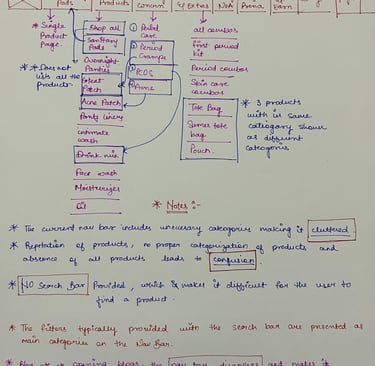 Pads Products Concern
* Single Product Page.
* * Does not lists all the products
Shop all
Sanitary Pads
Overnight Panties
Patch
Acne Patch
Panty liners
intimate wash
Face wash
Moisturizer
Oil
① Period Care
② Period Cramps
③ PCOS
④ Acne
all combos
first period kit
Period combos
Skin care combos
Tote Bag
Summer tote bag
Pouch.
* 3 products with in same category shown as different categories
* Notes :-
* The current nav bar includes unnecessary categories making it cluttered
* Repitation of products, no proper categorization of products and absence of all products leads to confusion
* NO Search Bar Provided, which is makes it difficult for the user to find a product.
* The filters typically provided with the search bar are presented as main categories on the Nav Bar.